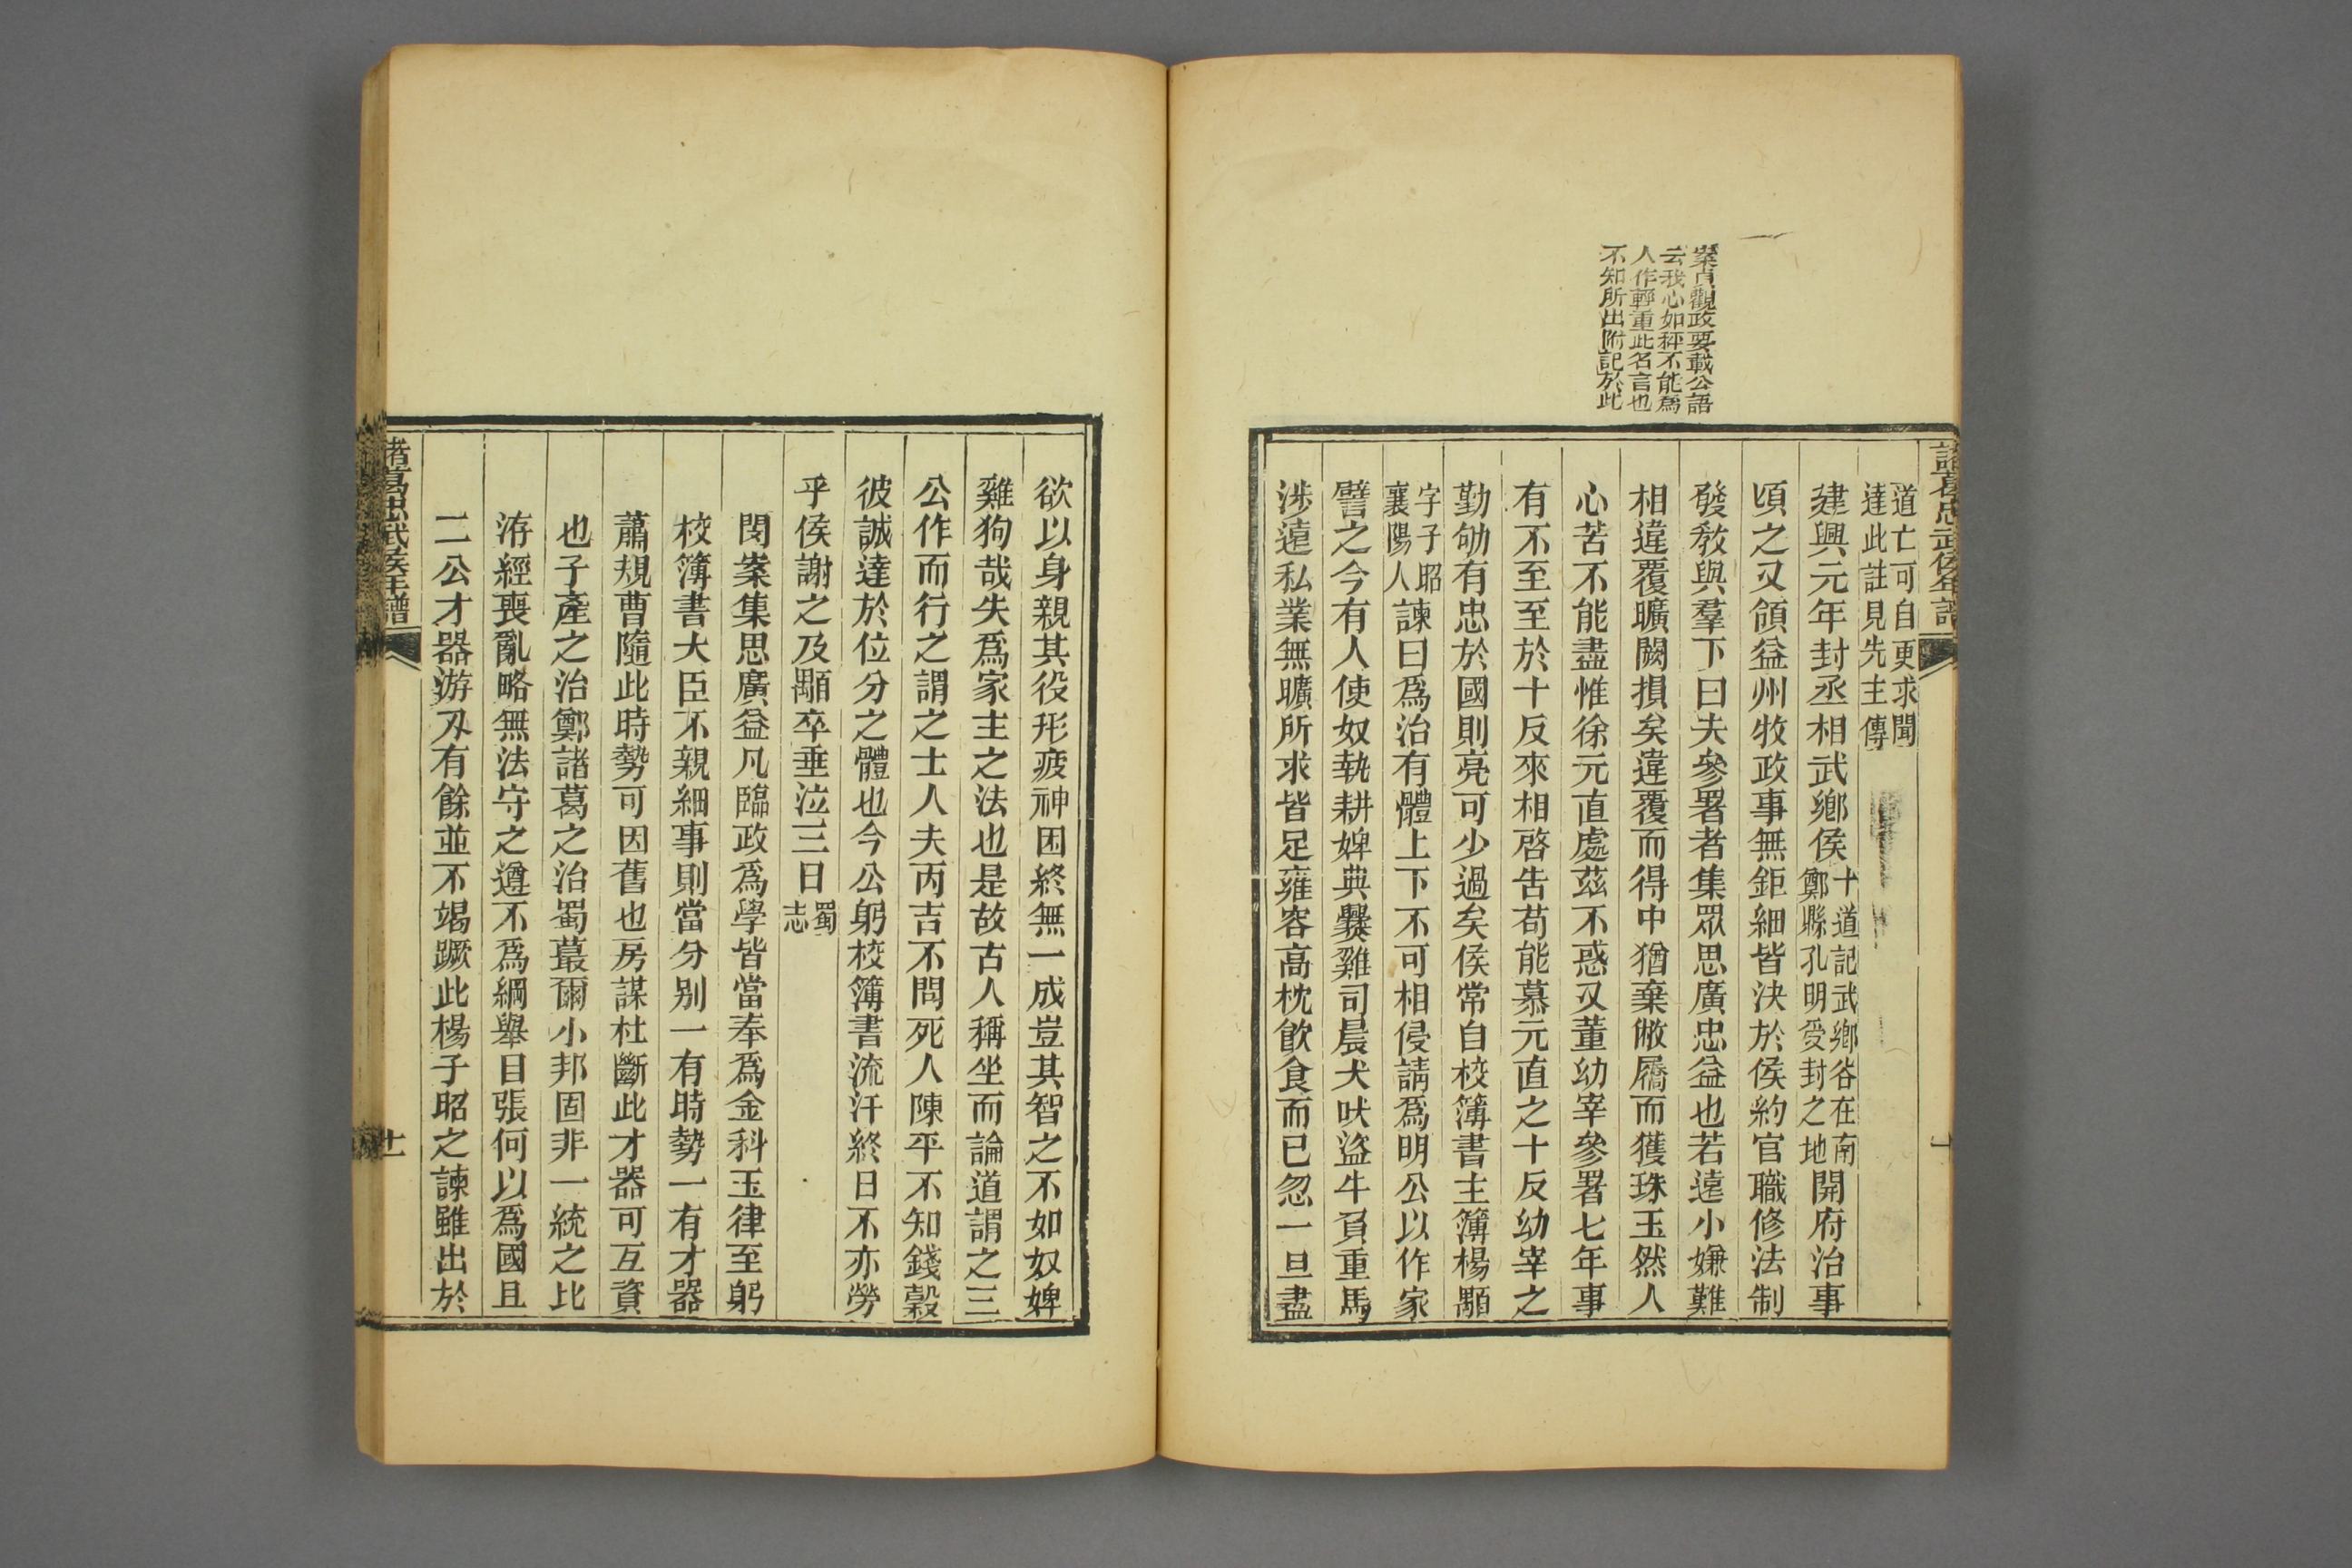 諸葛忠武侯年譜
十
案貞觀政要載公語
云我心如秤不能爲
人作輕重此名言也
不知所出附記於此
道亡可自更求聞
達此註見先主傳
建興元年封丞相武鄉侯十道記武鄉谷在南鄭縣孔明受封之地開府治事
頃之又領益州牧政事無鉅細皆決於侯約官職修法制
發教與羣下曰夫參署者集眾思廣忠益也若遠小嫌難
相違覆曠闕損矣違覆而得中猶棄敝蹻而獲珠玉然人
心苦不能盡惟徐元直處茲不惑又董幼宰參署七年事
有不至至於十反來相啓告苟能慕元直之十反幼宰之
勤劬有忠於國則亮可少過矣侯常自校簿書主簿楊顒
字子昭襄陽人諫曰爲治有體上下不可相侵請爲明公以作家
譬之今有人使奴執耕婢典爨雞司晨犬吠盜牛負重馬
涉遠私業無曠所求皆足雍容高枕飲食而已忽一旦盡
欲以身親其役形疲神困終無一成豈其智之不如奴婢
雞狗哉失爲家主之法也是故古人稱坐而論道謂之三
公作而行之謂之士人夫丙吉不問死人陳平不知錢穀
彼誠達於位分之體也今公躬校簿書流汗終日不亦勞
乎侯謝之及顒卒垂泣三日蜀志
閔案集思廣益凡臨政爲學皆當奉爲金科玉律至躬
校簿書大臣不親細事則當分別一有時勢一有才器
蕭規曹隨此時勢可因舊也房謀杜斷此才器可互資
也子產之治鄭諸葛之治蜀蕞爾小邦固非一統之比
洊經喪亂略無法守之遵不爲綱舉目張何以爲國且
二公才器游刃有餘並不竭蹶此楊子昭之諫雖出於
諸葛忠武侯年譜
十一